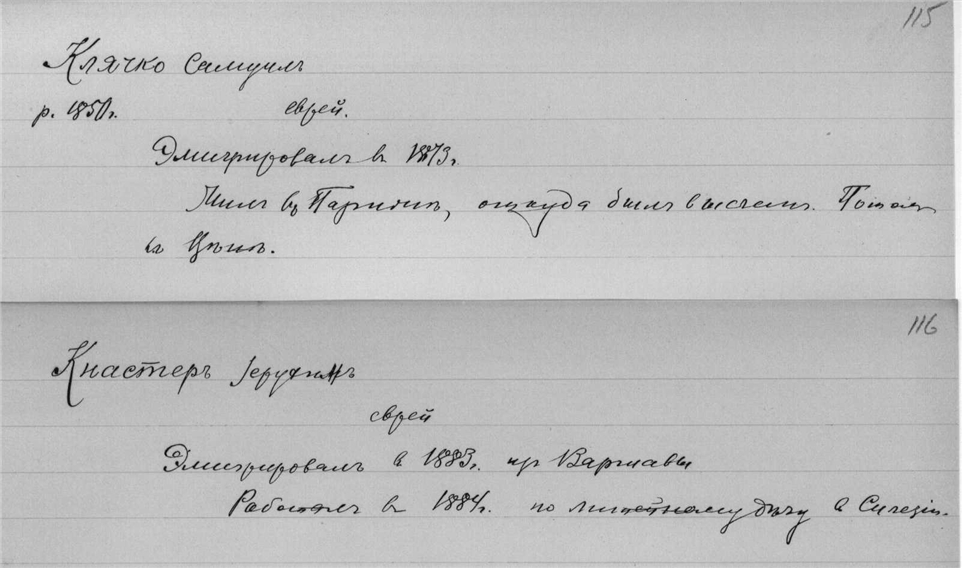 115
Клячко Самуилъ
р. 1850г. еврей.
Эмигрировалъ въ 1873г.
Жилъ въ Парижѣ, откуда былъ высланъ. Потомъ
въ Вѣнѣ.
116
Кнастеръ
еврей
Эмигрировалъ в 1883г. изъ Варшавы
Работалъ въ 1884г. по дѣлу в Силезіи.